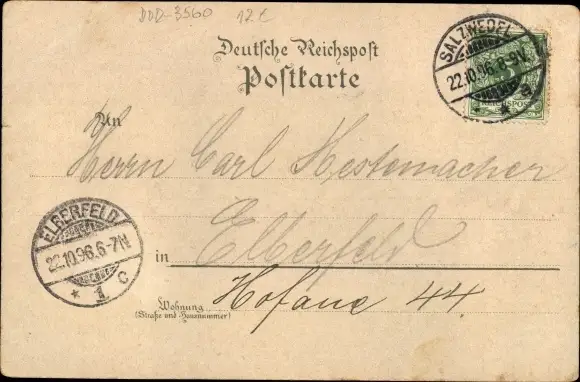 DDD-3560 12€
Deutsche Reichspost
Postkarte
SALZWEDEL
22.10.96.8-9V.
a
REICHSPOST
An
Herrn Carl Hestemacher
Elberfeld
ELBERFELD
22.10.96.6-7N.
* 1 c
in
Hofaue 44
Wohnung
(Straße und Hausnummer)